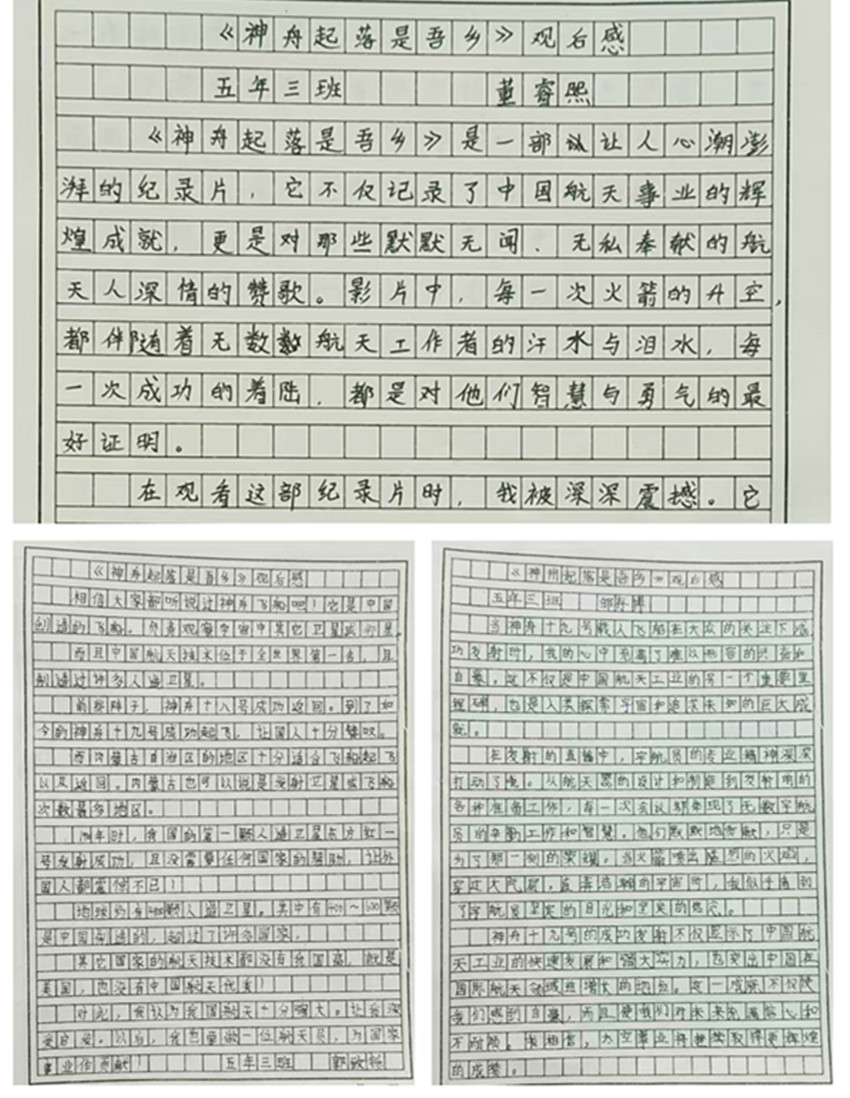 《神舟起落是吾乡》观后感
五年三班 董睿熙
《神舟起落是吾乡》是一部让人心潮澎
湃的纪录片，它不仅记录了中国航天事业的辉
煌成就，更是对那些默默无闻、无私奉献的航
天人深情的赞歌。影片中，每一次火箭的升空，
都伴随着无数数航天工作者的汗水与泪水，每
一次成功的着陆，都是对他们智慧与勇气的最
好证明。
在观看这部纪录片时，我被深深震撼。它
《神舟起落是吾乡》观后感
相信大家都听说过神舟飞船吧！它是中国
创造的飞船。负责观察宇宙中其它卫星或行星。
而且中国航天技术位于全世界第一名，且
制造过许多人造卫星。
前些阵子，神舟十八号成功返回。到了如
今的神舟十九号成功起飞，让国人十分赞叹。
而内蒙古自治区的地区十分适合飞船起飞
以及返回。内蒙古也可以说是发射卫星或飞船
次数最多地区。
时，我国的第一颗人造卫星东方红一
号发射成功，且没需要任何国家的帮助，让外
国人都震惊不已！
地球约有颗人造卫星。其中有400～500颗
是中国制造的，超过了许多国家。
其它国家的航天技术都没有我国高，就是
美国，也没有中国航天优秀！
对此，我认为我国航天十分强大。让我深
受自爱。以后，我也要做一位航天员，为国家
事业作贡献！ 五年三班
《神州起落是吾乡》观后感
五年三班
当神舟十九号载人飞船在大众的关注下成
功发射时，我的心中充满了难以形容的兴奋和
自豪。这不仅是中国航天工业的另一个重要里
程碑，也是人类探索宇宙和追求未知的巨大成
就。
在发射的直播中，宇航员的专业精神深深
打动了我。从航天器的设计和制造到发射前的
各种准备工作，每一次会议都体现了无数宇航
员的辛勤工作和智慧。他们默默地贡献，只是
为了那一刻的荣耀。当火箭喷出炽烈的火焰，
穿过大气层，直奔浩瀚的宇宙时，我似乎看到
了宇航员坚定的目光和坚定的信念。
神舟十九号的成功发射不仅显示了中国航
天工业的快速发展和强大实力，也突出中国在
国际航天领域日增长的地位。这一成就不仅使
我们感到自豪，而且使我们对未来充满信心和
不耐烦。我相信，太空事业将继续取得更辉煌
的成就。